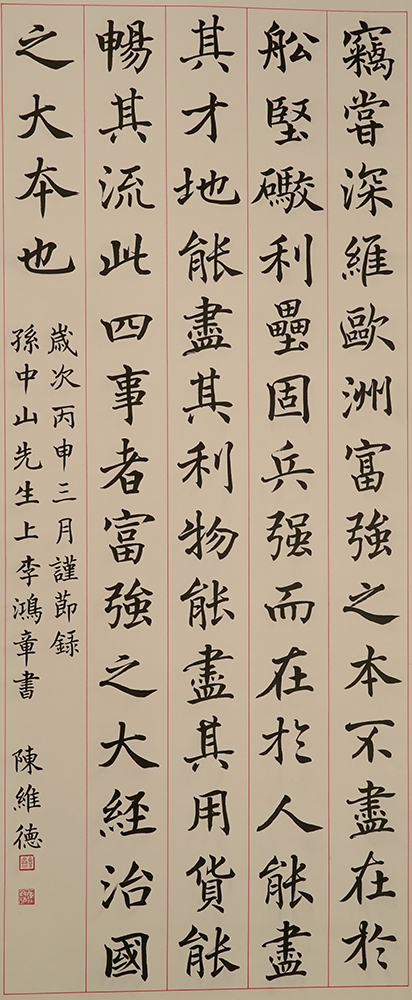 竊嘗深維歐洲富強之本不盡在於
舩堅礮利壘固兵强而在於人能盡
其才地能盡其利物能盡其用貨能
暢其流此四事者富強之大經治國
之大本也
歲次丙申三月謹節録
孫中山先生上李鴻章書
陳維德